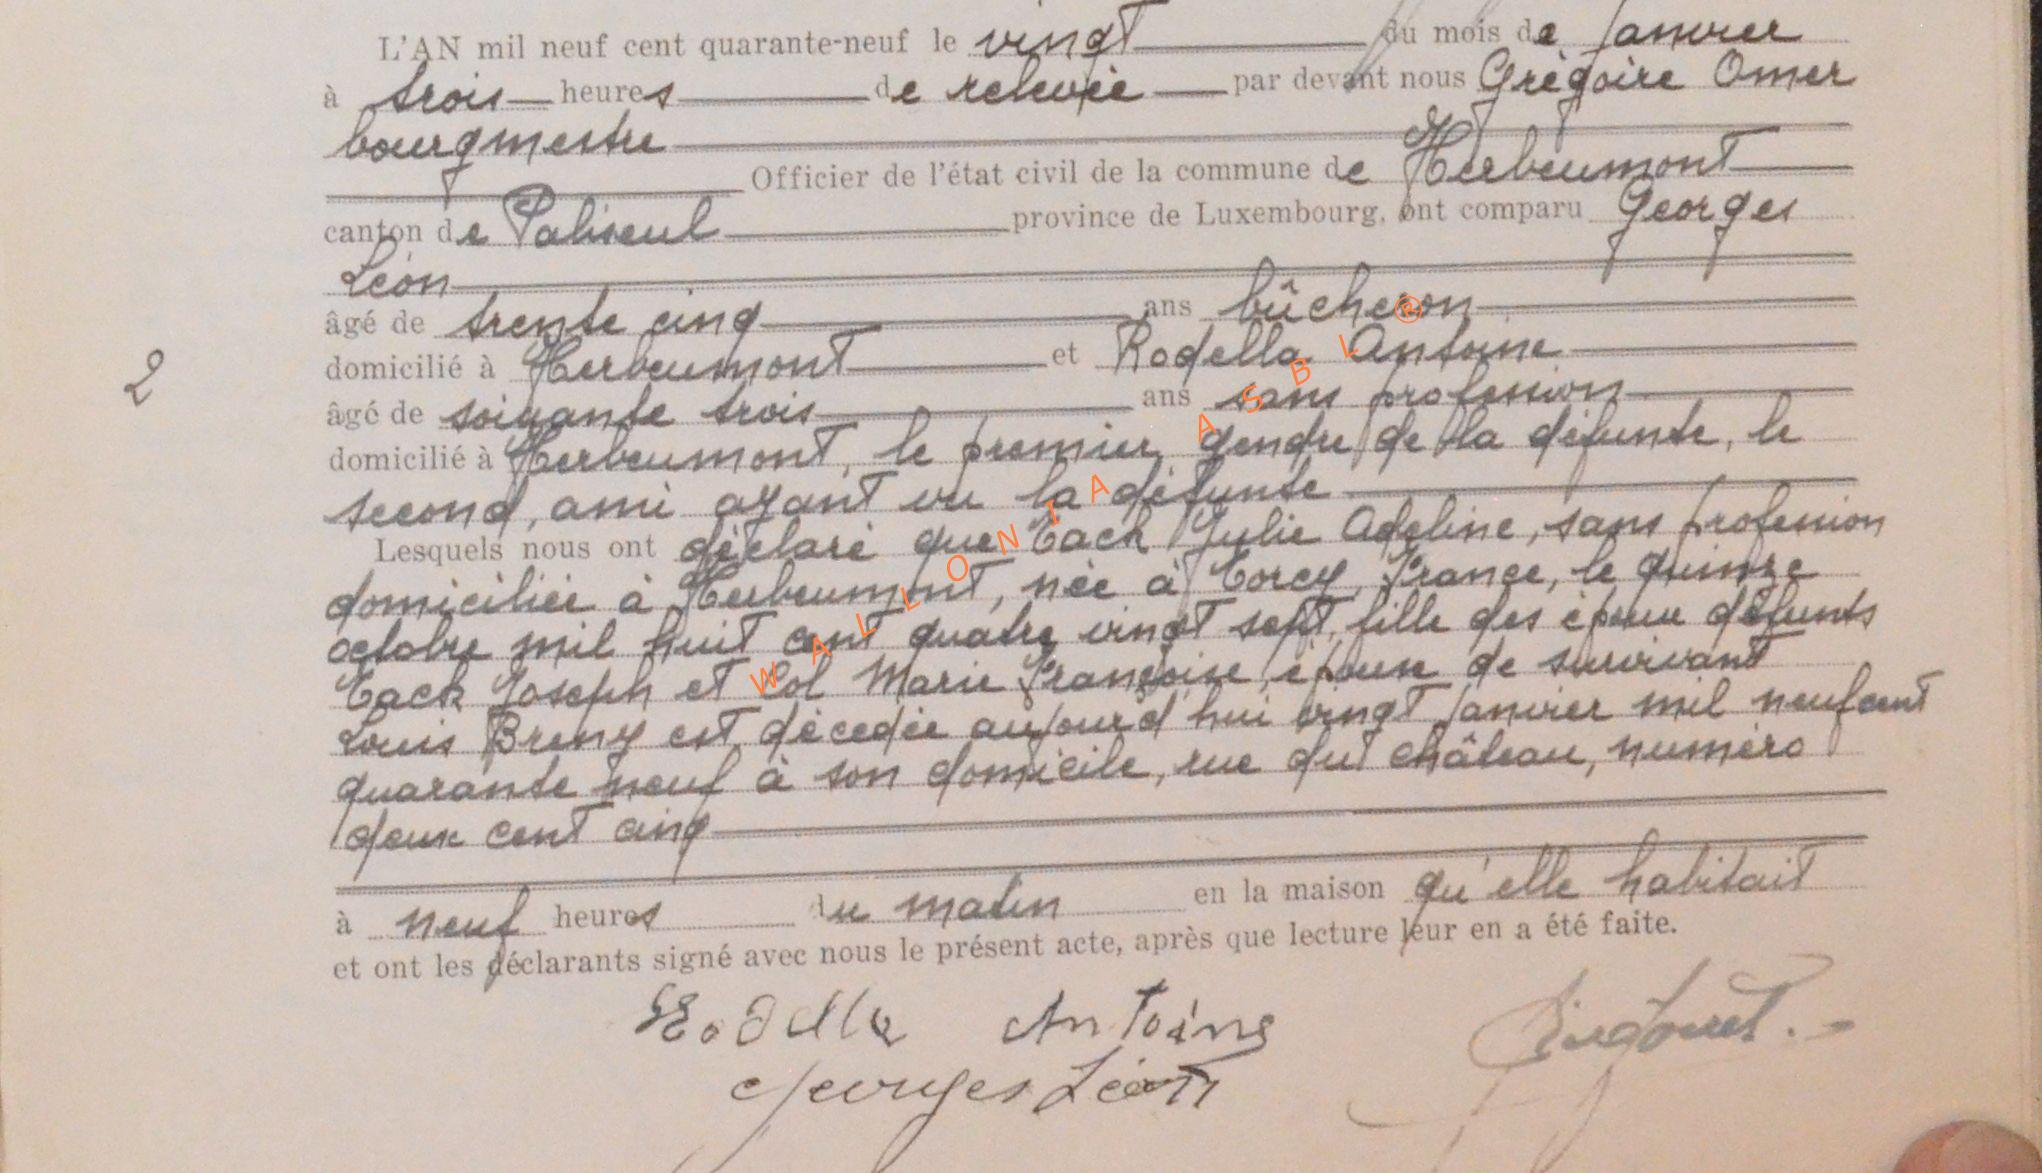 L'AN mil neuf cent quarante-neuf le vingt du mois de janvier
à trois heures de relevée par devant nous Grégoire Omer
bourgmestre
Officier de l'état civil de la commune de Herbeumont
canton de Paliseul province de Luxembourg, ont comparu Georges
Léon
âgé de trente cinq ans bûcheron
domicilié à Herbeumont et Rodella Antoine
2
âgé de soixante trois ans sans profession
domicilié à Herbeumont, le premier gendre de la défunte, le
second, ami ayant vu la défunte
Lesquels nous ont déclaré que Tack Julie Adeline, sans profession
domiciliée à Herbeumont, née à Torcy, France, le quinze
octobre mil huit cent quatre vingt sept, fille des époux défunts
Tack Joseph et Col Marie Françoise, épouse de survivant
Louis Breny est décédée aujourd'hui vingt janvier mil neuf cent
quarante neuf à son domicile, rue du château, numéro
deux cent cinq
à neuf heures du matin en la maison qu'elle habitait
et ont les déclarants signé avec nous le présent acte, après que lecture leur en a été faite.
Rodella Antoine
Georges Léon
WALLONIA ASBL ®